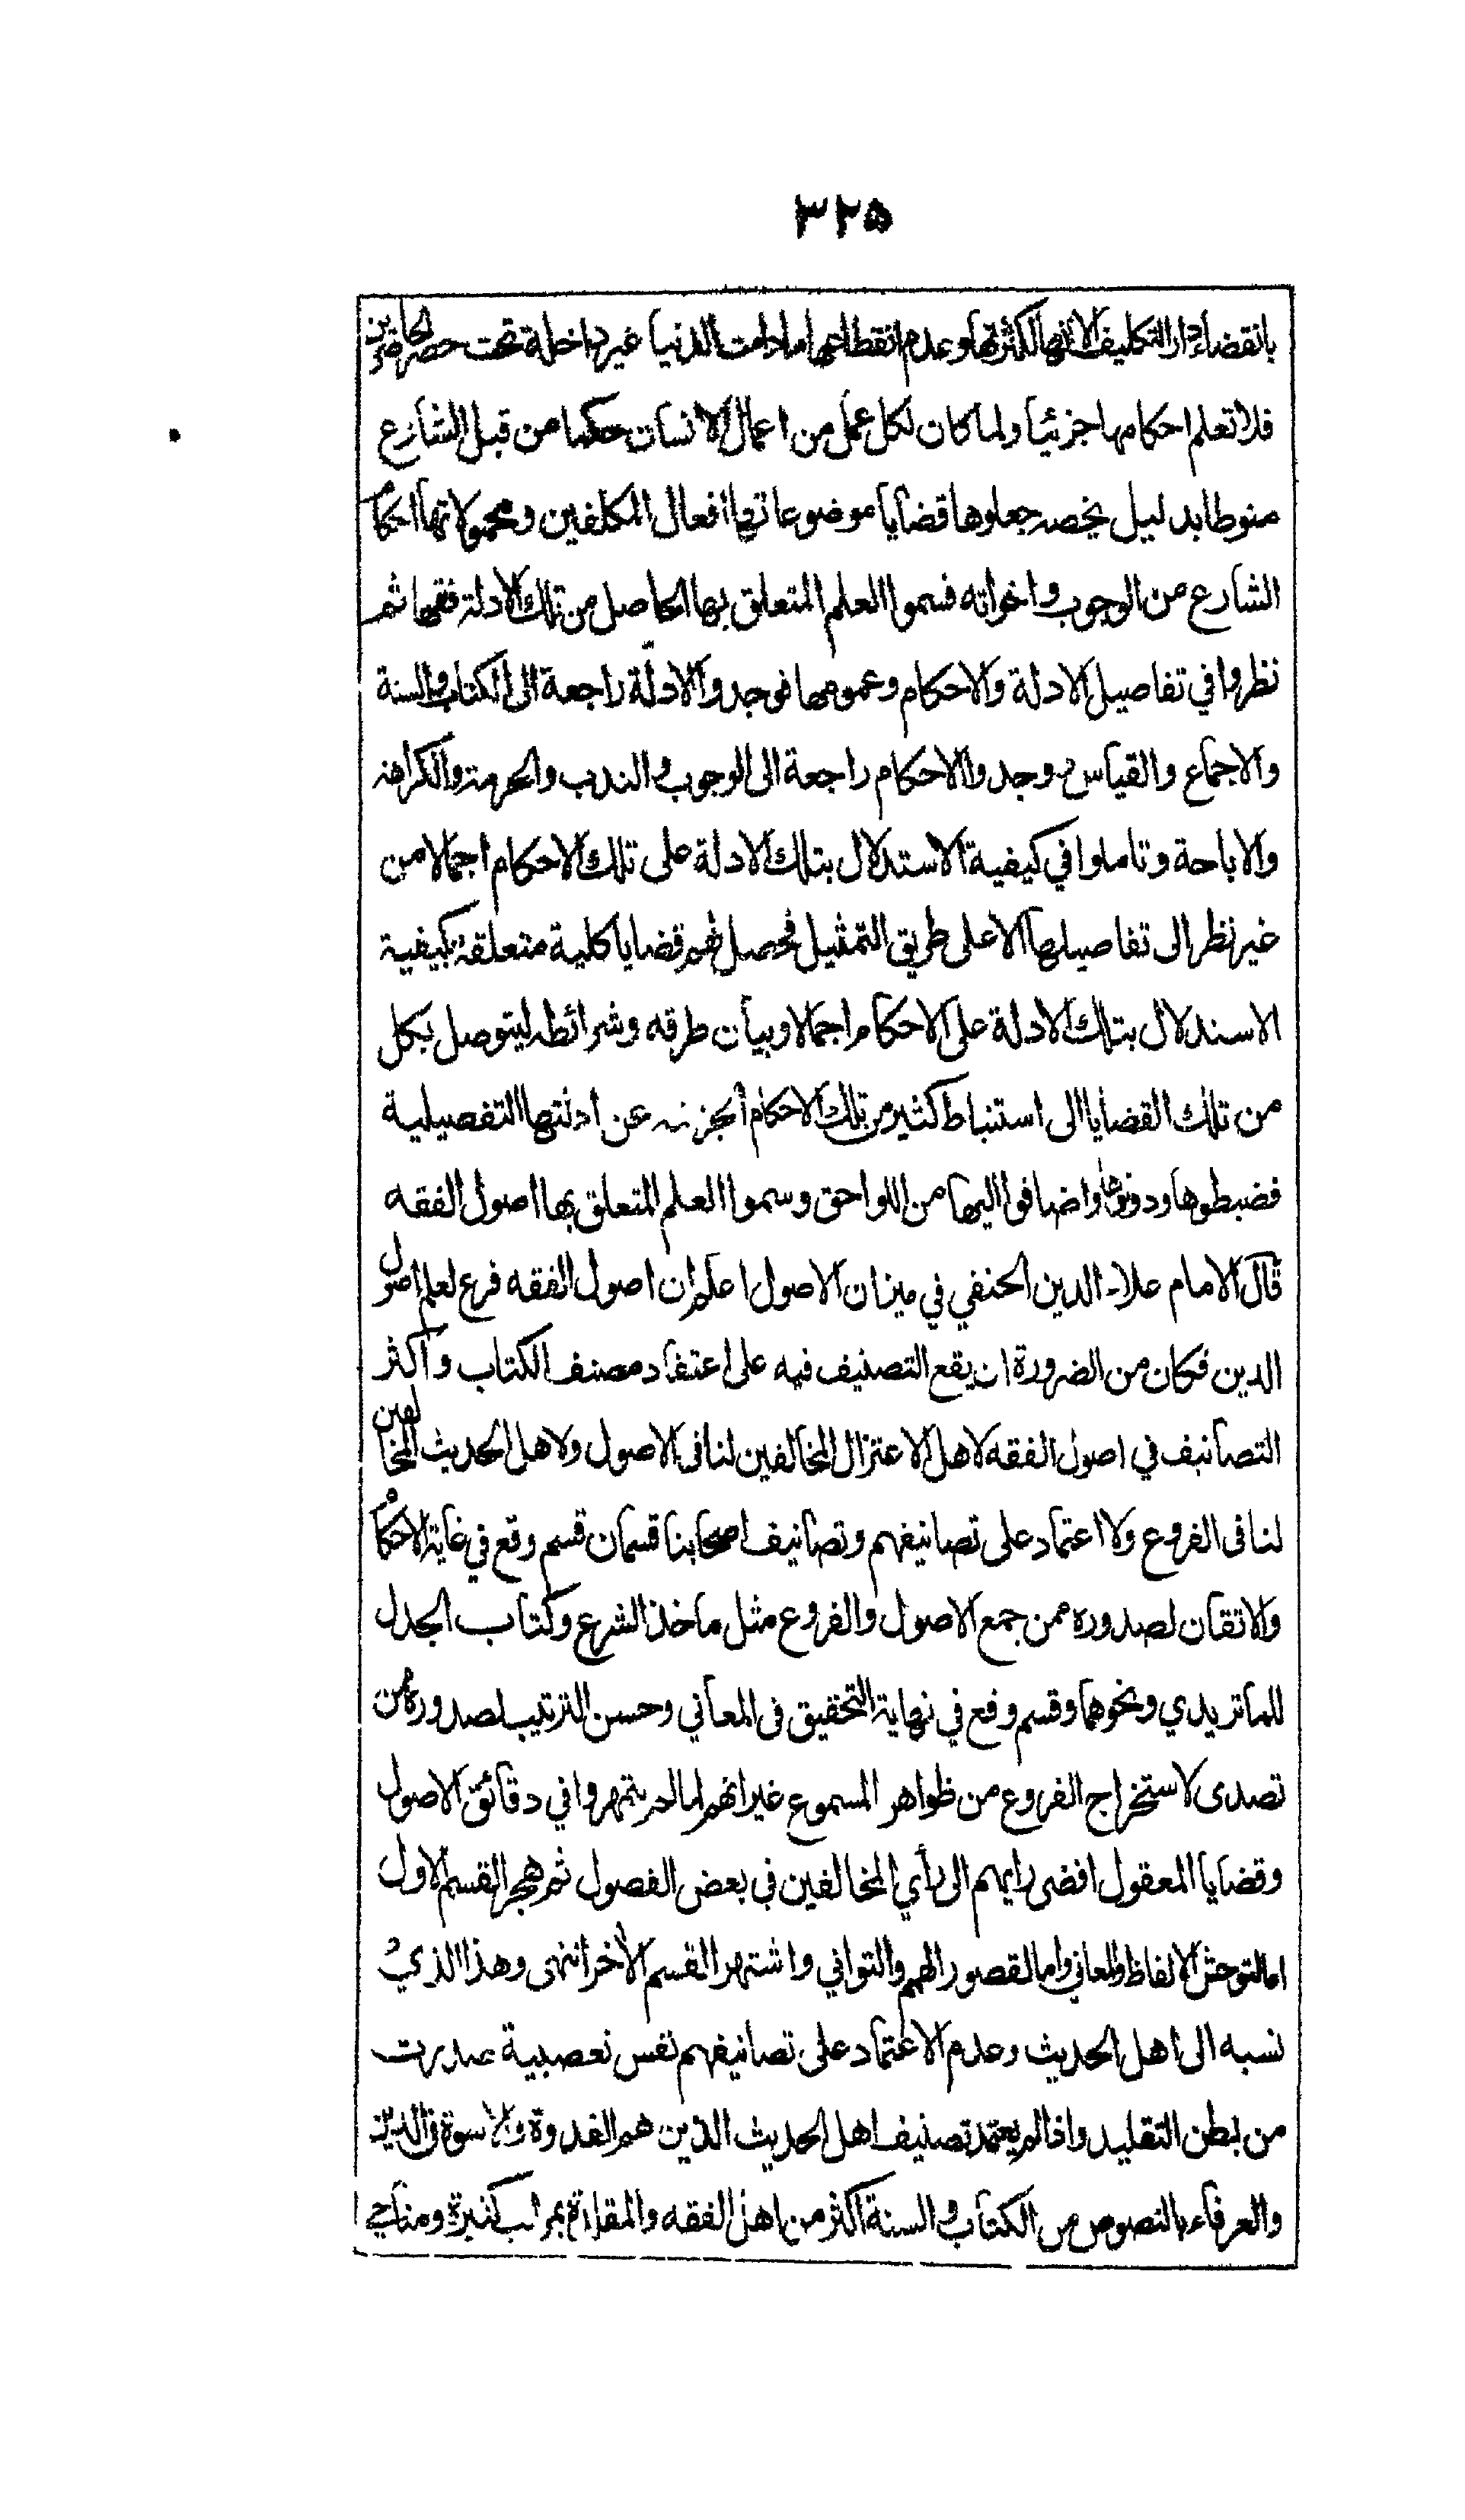 ٣٢٥
بانقضاء دار التكليف الا انها لكثرتها وعدم انقطاعها ما دامت الدنيا غير داخلة تحت حصر الحاصرين
فلا تعلم احكامها جزئيا ولما كان لكل عمل من اعمال الانسان حكما من قبل الشارع
منوطا بدليل يخصه جعلوها قضايا موضوعاتها افعال المكلفين ومحمولاتها احكام
الشارع من الوجوب واخواته فسموا العلم المتعلق بها الحاصل من تلك الادلة فقها ثم
نظروا في تفاصيل الادلة والاحكام وعمومها فوجدوا الادلّة راجعة الى الكتاب والسنة
والاجماع والقياس ووجدوا الاحكام راجعة الى الوجوب والندب والحرمة والكراهة
والاباحة وتاملوا في كيفية الاستدلال بتلك الادلة على تلك الاحكام اجمالا من
غير نظر الى تفاصيلها الا على طريق التمثيل فحصل لهم قضايا كلية متعلقة بكيفية
الاستدلال بتلك الادلة على الاحكام اجمالا وبيان طرقه وشرائطه ليتوصل بكل
من تلك القضايا الى استنباط كثير من تلك الاحكام الجزئية عن ادلتها التفصيلية
فضبطوها ودونوها واضافوا اليها من اللواحق وسموا العلم المتعلق بها اصول الفقه
قال الامام علاء الدين الحنفي في ميزان الاصول اعلم ان اصول الفقه فرع لعلم اصول
الدين فكان من الضرورة ان يقع التصنيف فيه على اعتقاد مصنف الكتاب واكثر
التصانيف في اصول الفقه لاهل الاعتزال المخالفين لنا في الاصول ولاهل الحديث المخالفين
لنا في الفروع ولا اعتماد على تصانيفهم وتصانيف اصحابنا قسمان قسم وقع في غاية الاحكام
والاتقان لصدوره ممن جمع الاصول والفروع مثل ماخذ الشرع وكتاب الجدل
للماتريدي ونحوهما وقسم وقع في نهاية التحقيق في المعاني وحسن الترتيب لصدوره ممن
تصدى لاستخراج الفروع من ظواهر المسموع غير انهم لما لم يتمهروا في دقائق الاصول
وقضايا المعقول افضى رايهم الى رأي المخالفين في بعض الفصول ثم هجر القسم الاول
اما لتوحش الالفاظ والمعاني واما لقصور الهمم والتواني واشتهر القسم الأخر انتهى وهذا الذي
نسبه الى اهل الحديث وعدم الاعتماد على تصانيفهم نفس تعصبية صدرت
من بطن التقليد واذا لم يعتمد تصنيف اهل الحديث الذين هم القدوة والاسوة في الدين
والعرفاء بالنصوص من الكتاب والسنة اكثر من اهل الفقه والمقلدة بمراتب كثيرة ومناحي